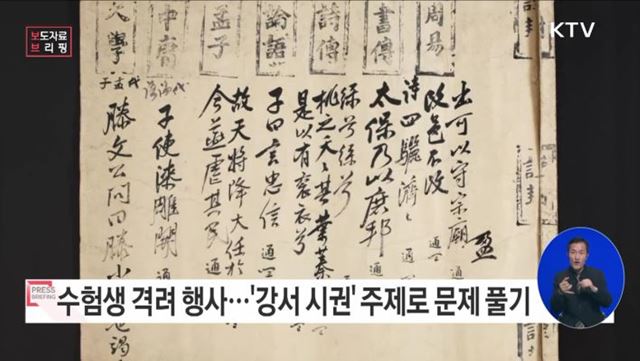 보도자료
브리핑
KTV
周易
書傳
詩傳
論語
孟子
中庸
大學
出可以守宗廟
盈
改邑不改
詩四驪濟〻 通
太保乃以庶邦
綏兮綏兮
桃之夭〻其葉蓁
是以有袞衣兮
子曰言忠信 通
故天將降大任於
今燕虐其民 通
子使漆雕開 通
滕文公問曰滕小
PRESS
BRIEFING
수험생 격려 행사…'강서 시권' 주제로 문제 풀기